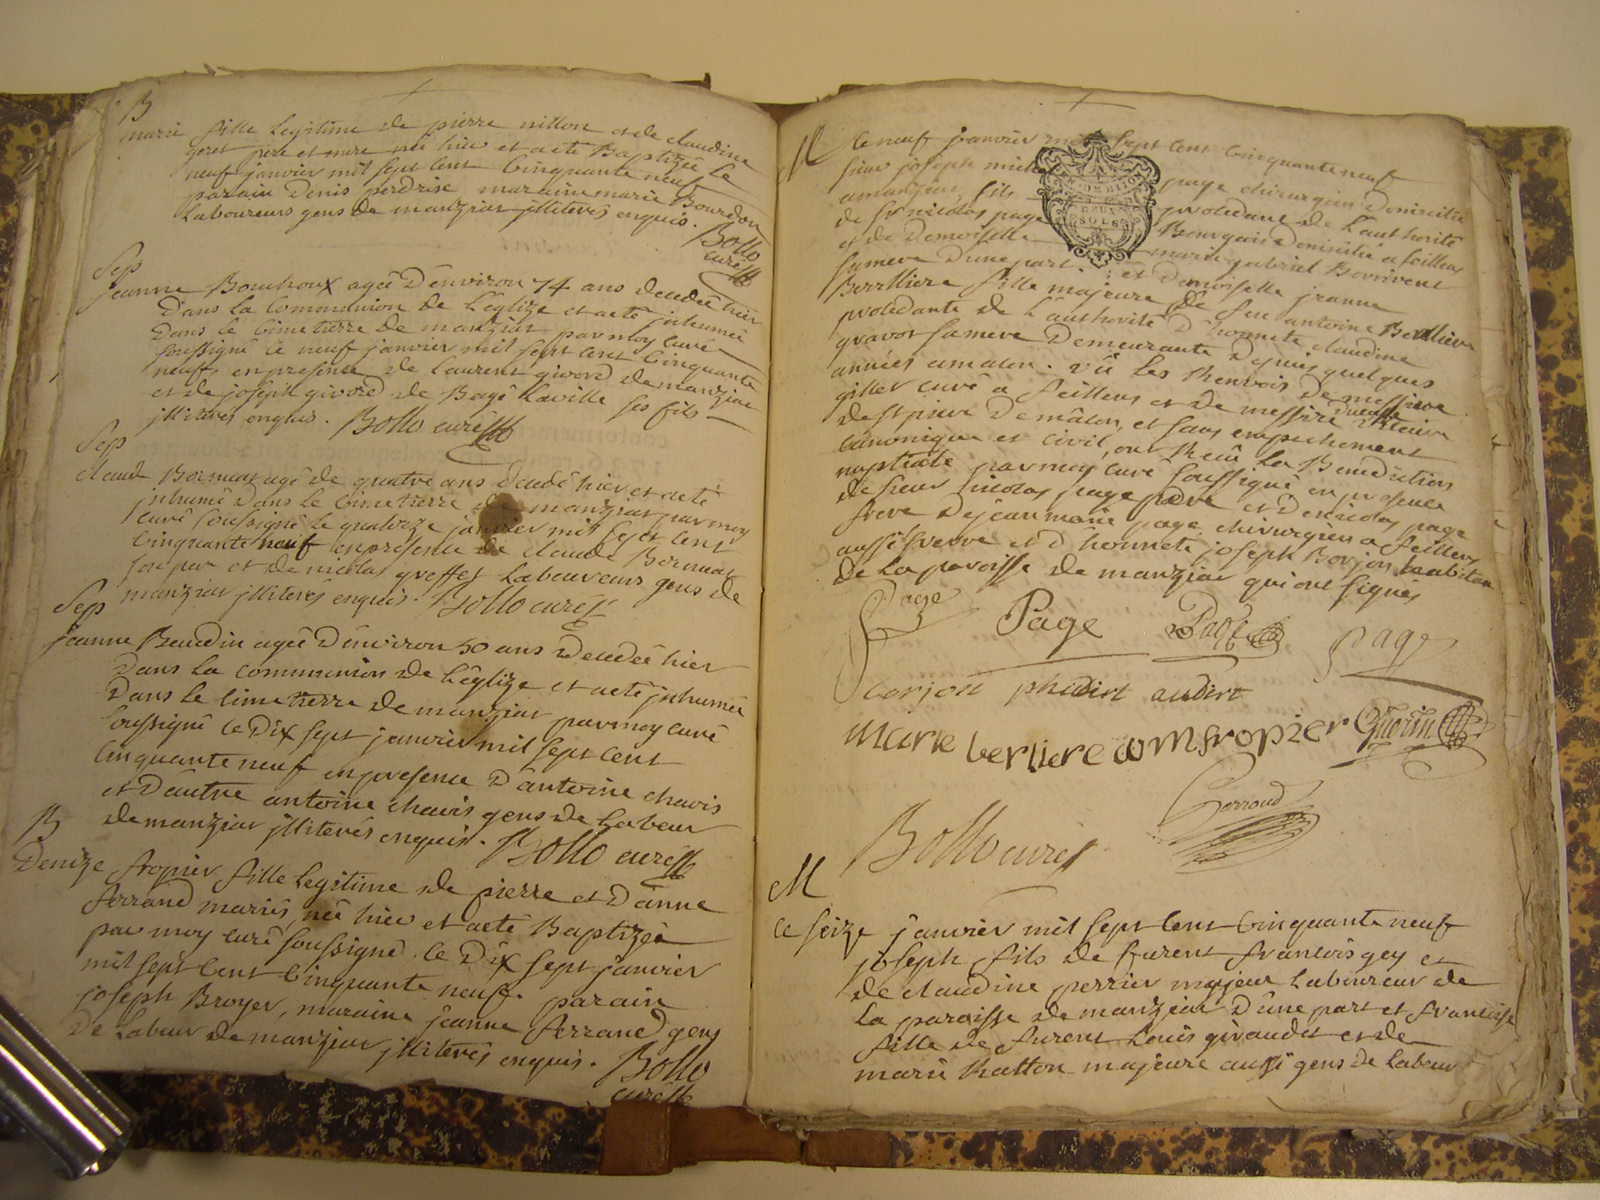 B
marie fille legitime de pierre nillon et de claudine
goret pere et mere née hier et a eté Baptizée le
neuf janvier mil sept cent cinquante neuf
parain Denis perdrise maraine marie Bourdon
Laboureurs gens de manziat jlliterés enquis.
Bollo
curé
Sep
jeanne Bouchoux agée D'environ 74 ans décedée hier
Dans la Communion de L'eglize et a eté jnhumée
Dans le Cimetierre de manziat par moy curé
soussigné le neuf janvier mil sept cent cinquante
neuf en presence de Laurent givord de manziat
et de joseph givord de Bagé La ville ses fils
jlliterés enquis. Bollo curé
Sep
claude Bernard agé de quatre ans décedé hier et a eté
jnhumé Dans le Cimetierre de manziat par moy
curé soussigné le quatorze janvier mil sept cent
cinquante neuf en présence de claude Bernard
son pere et de nicolas greffet Laboureurs gens de
manziat jlliterés enquis. Bollo curé
Sep
jeanne Beaudin agée D'environ 50 ans Decedée hier
Dans La communion de L'églize et a eté jnhumée
Dans le Cimetierre de manziat par moy curé
soussigné le Dix sept janvier mil sept cent
cinquante neuf en presence D'antoine chavis
et D'autre antoine chavis gens de Labeur
de manziat jlliterés enquis. Bollo curé
B
Denize fropier fille Legitime de pierre et D'anne
ferrand mariés, née hier et a eté Baptizée
par moy curé soussigné le Dix sept janvier
mil sept cent cinquante neuf. parain
joseph Broyer, maraine jeanne ferrand gens
de Labeur de manziat jlliterés enquis.
Bollo
curé
M
le neuf janvier mil sept cent cinquante neuf
sieur joseph page chirurgien Domicilié
a manziat, fils procedant de L'authorité
de sr nicolas page Bourgeois Domicilié a feillens
et de Demoiselle marie gabriel
sa mere D'une part. et Demoiselle jeanne
Berrliere fille majeure de feu antoine Berrliere
procedante de L'authorité D'honnete claudine
gravot sa mere Demeurante Depuis quelques
années a macon. vû les Renvois de messire
gillet curé a feillens et de messire vicaire
de st pierre De mâcon, et sans empechement
canonique et civil, ont Reçû La Benediction
nuptiale par moy curé soussigné en presence
de sieur nicolas page pere et De nicolas page
frere De jean marie page chirurgien a feillens
aussi frere et D'honnete joseph Borjon habitant
de La paroisse de manziat qui ont signés
Page Page Page page
corjon audirt
marie berliere fropier Guerin
Ferroud
Bollo curé
M
Le seize janvier mil sept cent cinquante neuf
joseph fils de furent francois gey et
de claudine perrier majeur Laboureur de
La paroisse de manziat D'une part et francoise
fille de furent Louis giraudet et de
marie Ratton majeure aussi gens de Labeur